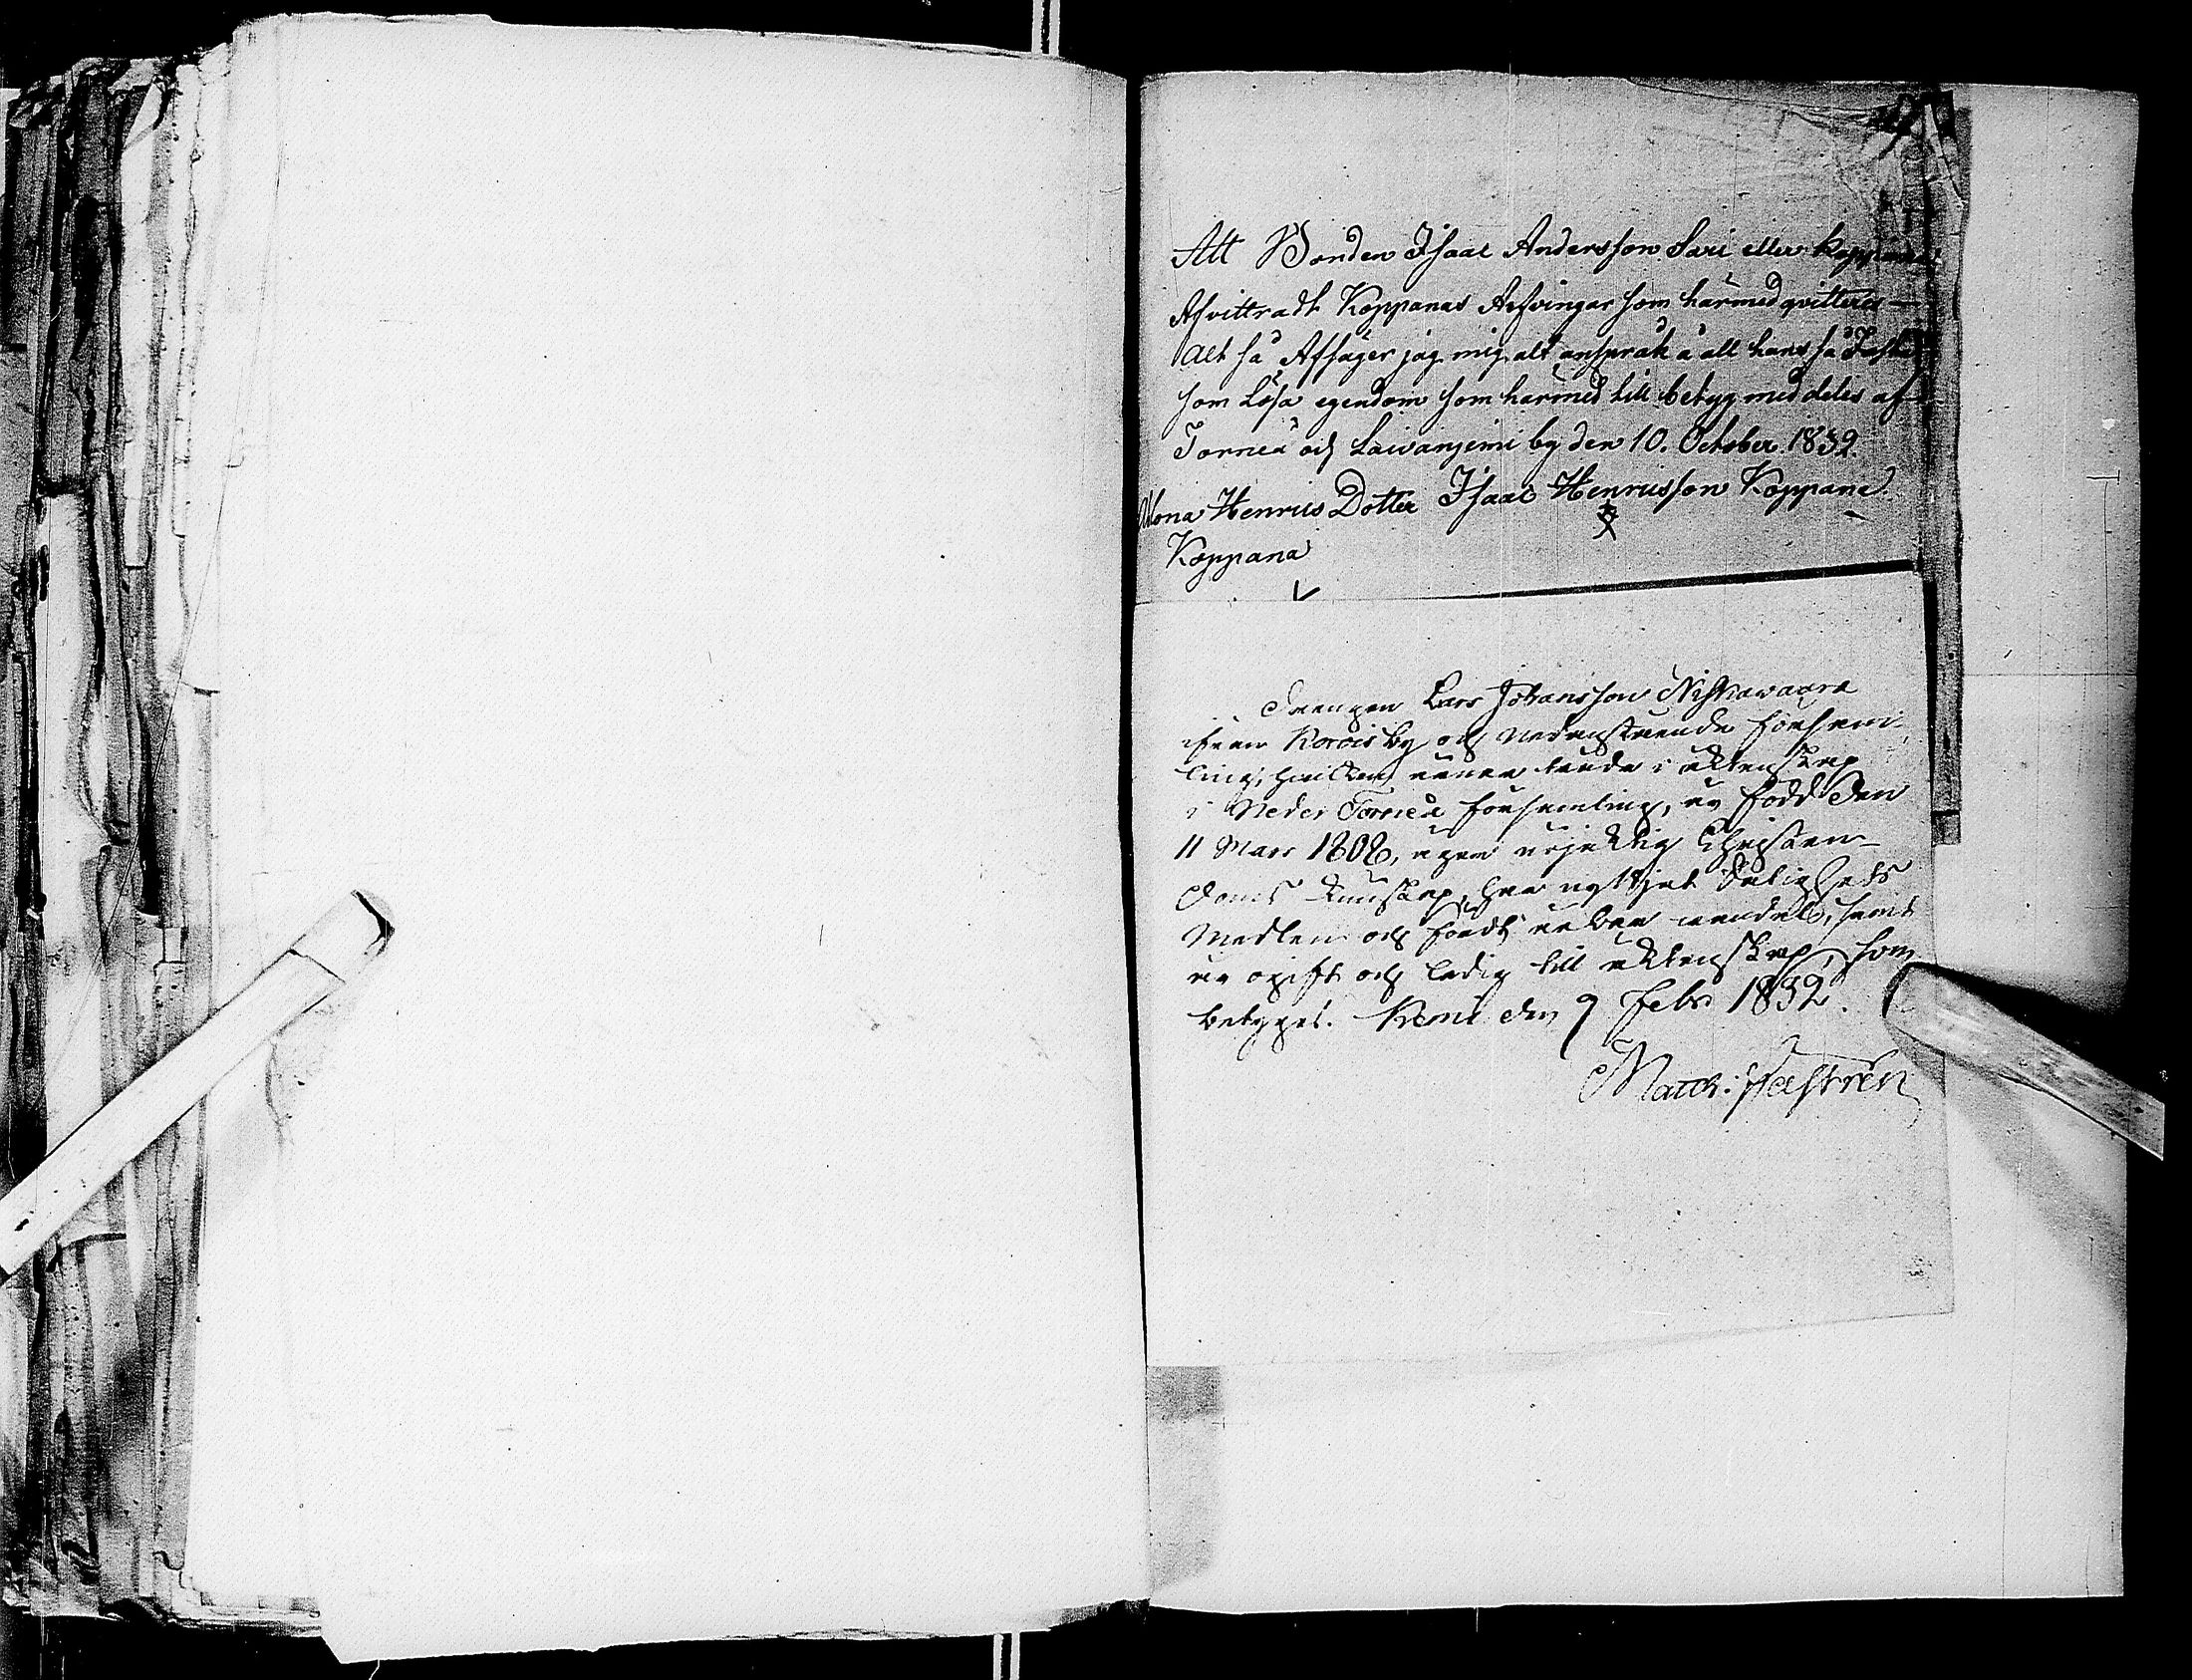 Att Bonden Isaac Andersson Sari eller Koppana
Afvittradt Koppanas Arfvingar som härmed qvitteras —
Alt så Afsäger jag mig alt anspråk å all hans så Fasta
som Lösa egendom som härmed till betyg meddeles af
Torneå och Laivanjemi by den 10. October 1832.
Henrics Dotter Isaac Henricsson Koppana
Koppana
Drängen Lars Johansson Niskawaara
ifrån Korois by och nedanstående försam-
ling, hvilken ärnar träda i äktenskap
i Neder Torneå församling, är född den
11 Mars 1808, äger nöjaktig Christen-
doms kunskap, har nyttjat Salighets
Medlen och fördt ärbar vandel, samt
är ogift och ledig till äktenskap, som
betygas. Kemi den 9 Febr 1832.
Matth: Castrén